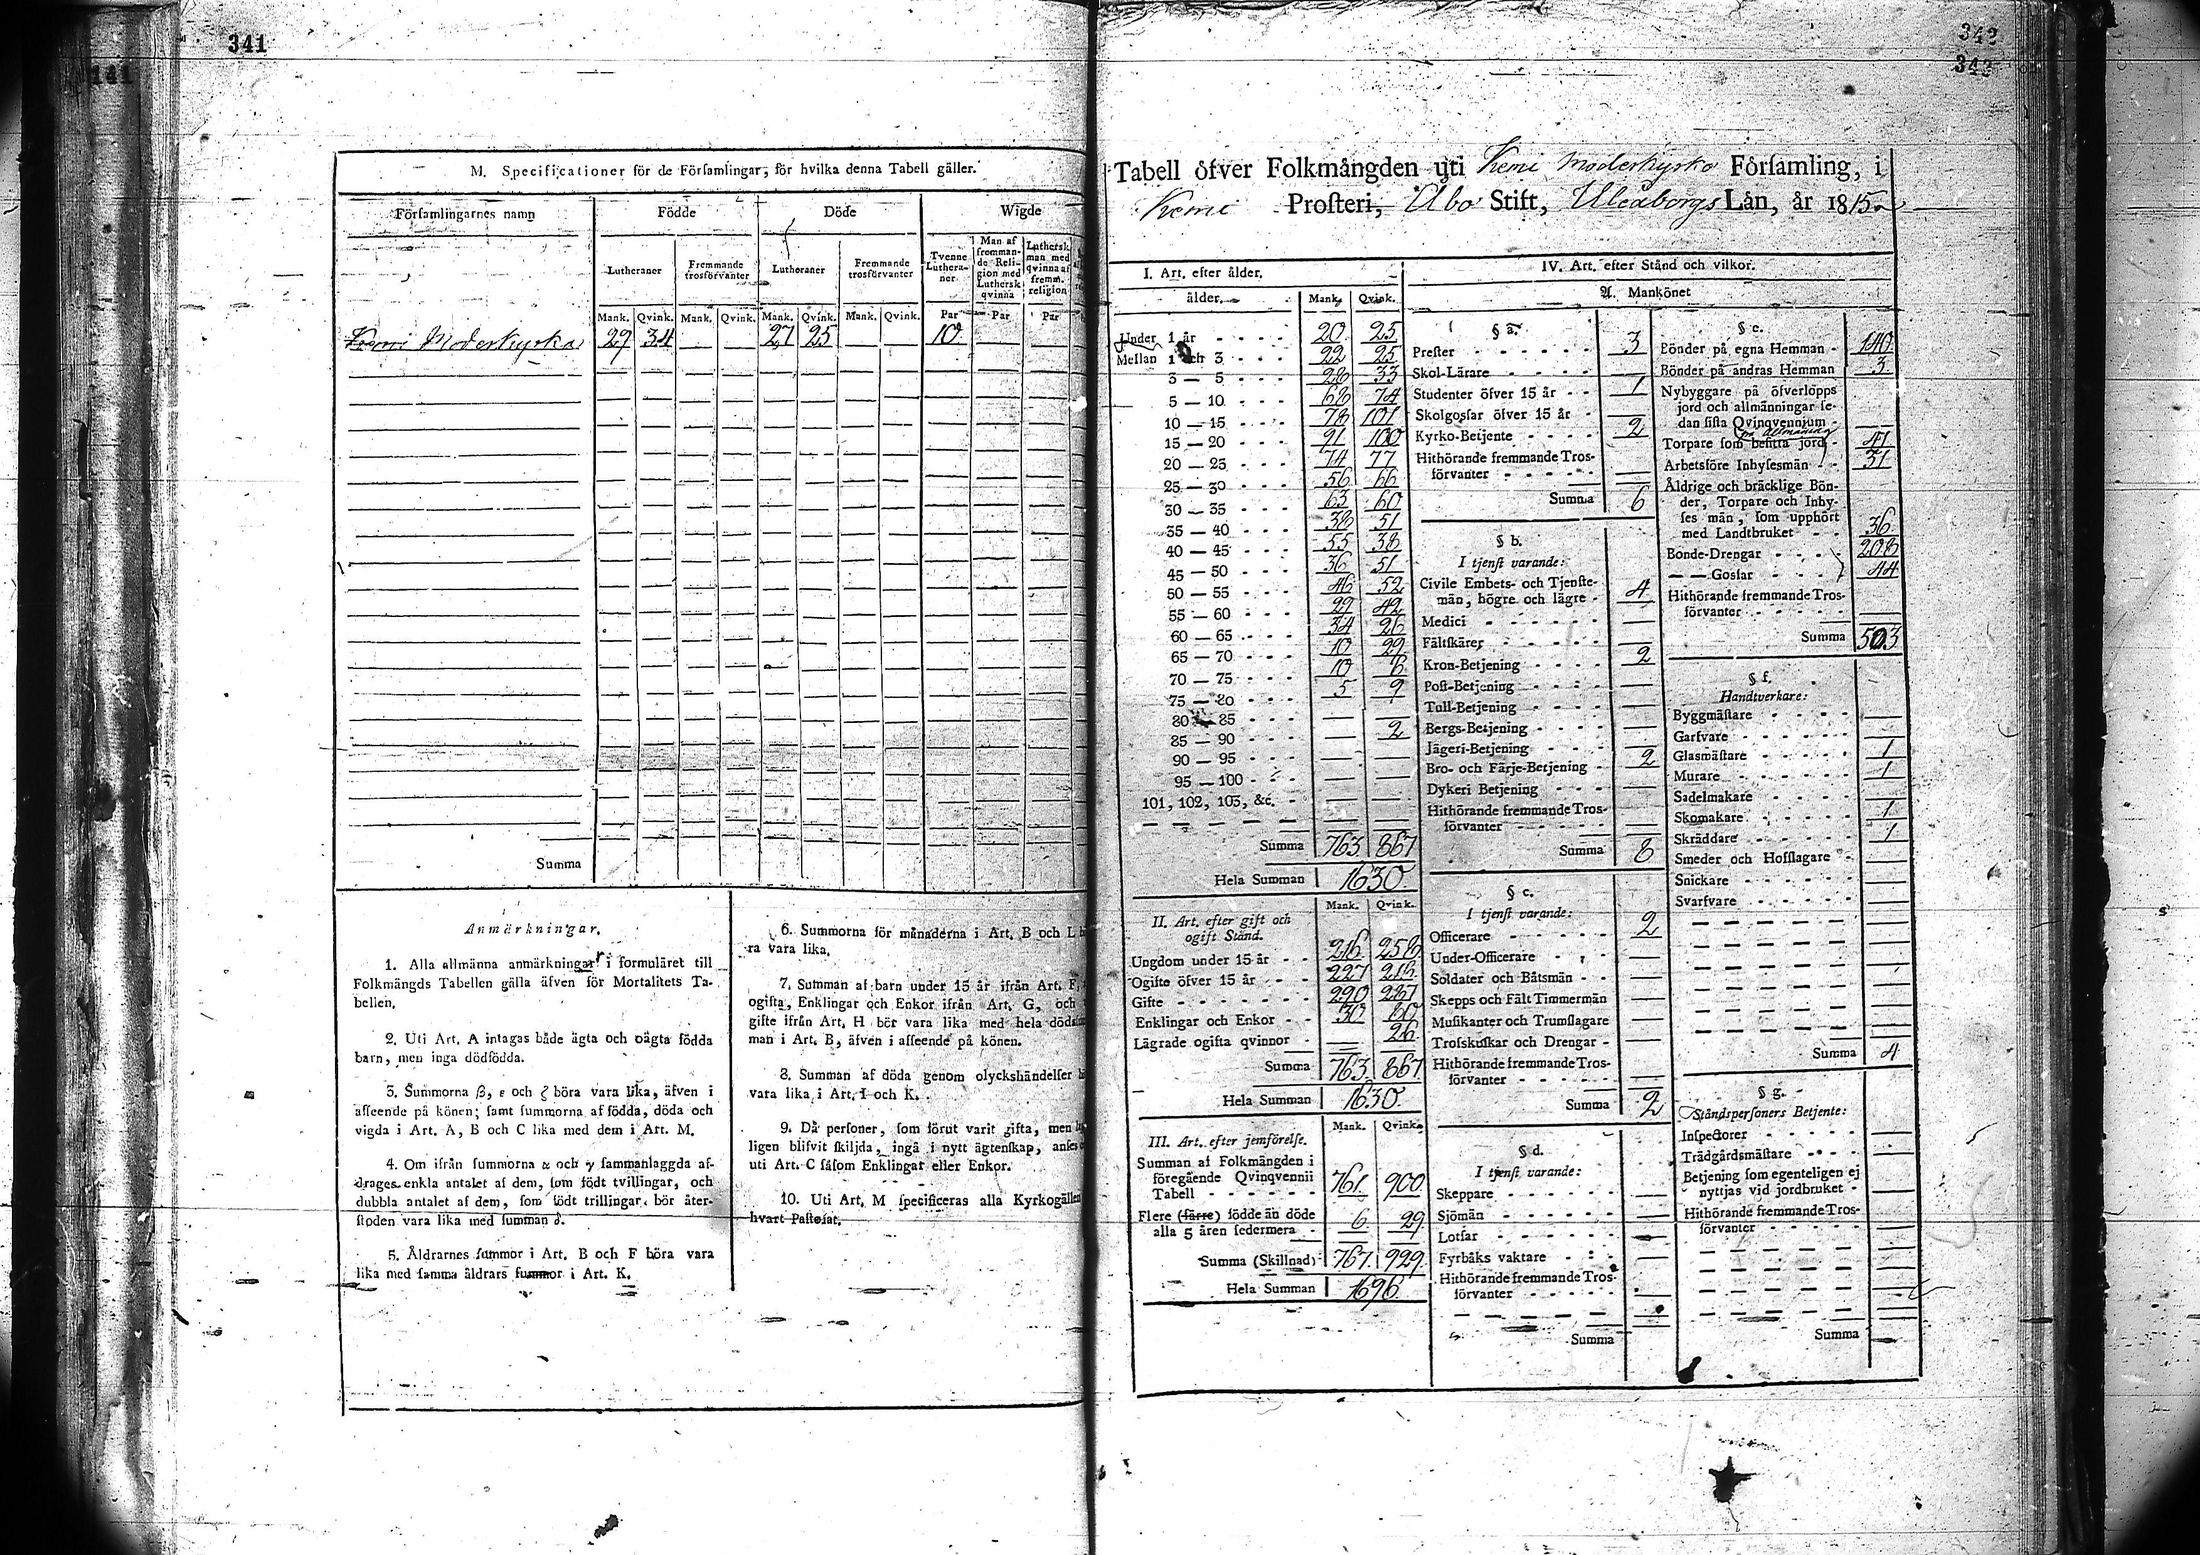 341
342
343
M. Specificationer för de Församlingar, för hvilka denna Tabell gäller.
Församlingarnes namn Födde Döde Wigde
Lutheraner Fremmande trosförvanter Lutheraner Fremmande trosförvanter Tvenne Lutheraner Man af fremmande Religion med Luthersk qvinna Luthersk man med qvinna af fremm. religion
Mank. Qvink. Mank. Qvink. Mank. Qvink. Mank. Qvink. Par Par Par
Kemi Moderkyrka 29 34 — — 27 25 — — 10
Summa
Anmärkningar.
1. Alla allmänna anmärkningar i formuläret till
Folkmängds Tabellen gälla äfven för Mortalitets Ta-
bellen.
2. Uti Art. A intagas både ägta och oägta födda
barn, men inga dödfödda.
3. Summorna β, ε och ζ böra vara lika, äfven i
afseende på könen; samt summorna af födda, döda och
vigda i Art. A, B och C lika med dem i Art. M.
4. Om ifrån summorna α och γ sammanlaggda af-
drages enkla antalet af dem, som födt tvillingar, och
dubbla antalet af dem, som födt trillingar, bör åter-
stoden vara lika med summan δ.
5. Åldrarnes summor i Art. B och F böra vara
lika med samma åldrars summor i Art. K.
6. Summorna för månaderna i Art. B och L
ra vara lika.
7. Summan af barn under 15 år ifrån Art. F,
ogifta, Enklingar och Enkor ifrån Art. G, och
gifte ifrån Art. H bör vara lika med hela
man i Art. B, äfven i afseende på könen.
8. Summan af döda genom olyckshändelser
vara lika i Art. I och K.
9. Då personer, som förut varit gifta, men
ligen blifvit skiljda, ingå i nytt ägtenskap,
uti Art. C såsom Enklingar eller Enkor.
10. Uti Art. M specificeras alla Kyrkogällen
hvart Pastorat.
Tabell öfver Folkmängden uti Kemi Moderkyrko Församling, i
Kemi Prosteri, Åbo Stift, Uleåborgs Län, år 1815.
I. Art. efter ålder.
ålder. Mank. Qvink.
Under 1 år 20 25
Mellan 1 och 3 22 25
3 — 5 28 33
5 — 10 68 74
10 — 15 78 101
15 — 20 91 100
20 — 25 74 77
25 — 30 56 66
30 — 35 63 60
35 — 40 38 51
40 — 45 55 38
45 — 50 36 51
50 — 55 46 52
55 — 60 29 42
60 — 65 34 26
65 — 70 10 29
70 — 75 10 6
75 — 80 5 9
80 — 85 — —
85 — 90 — 2
90 — 95 — —
95 — 100 — —
101, 102, 103, &c. — —
Summa 763 867
Hela Summan 1630
II. Art. efter gift och
ogift Stånd. Mank. Qvink.
Ungdom under 15 år 216 258
Ogifte öfver 15 år 227
Gifte 290 287
Enklingar och Enkor 30
Lägrade ogifta qvinnor — 26
Summa 763 867
Hela Summan 1630
III. Art. efter jemförelse. Mank. Qvink.
Summan af Folkmängden i
föregående Qvinqvennii
Tabell 761 900
Flere (färre) födde än döde
alla 5 åren sedermera 6 29
Summa (Skillnad) 767 929
Hela Summan 1696
IV. Art. efter Stånd och vilkor.
A. Mankönet
§ a.
Prester 3
Skol-Lärare —
Studenter öfver 15 år 1
Skolgossar öfver 15 år —
Kyrko-Betjente 2
Hithörande fremmande Tros-
förvanter —
Summa 6
§ b.
I tjenst varande:
Civile Embets- och Tjenste-
män, högre och lägre 4
Medici —
Fältskärer —
Kron-Betjening 2
Post-Betjening —
Tull-Betjening —
Bergs-Betjening —
Jägeri-Betjening —
Bro- och Färje-Betjening 2
Dykeri Betjening —
Hithörande fremmande Tros-
förvanter —
Summa 8
§ c.
I tjenst varande:
Officerare 2
Under-Officerare —
Soldater och Båtsmän —
Skepps och Fält Timmermän —
Musikanter och Trumslagare —
Trosskuskar och Drengar —
Hithörande fremmande Tros-
förvanter —
Summa 2
§ d.
I tjenst varande:
Skeppare —
Sjömän —
Lotsar —
Fyrbåks vaktare —
Hithörande fremmande Tros-
förvanter —
Summa
§ e.
Bönder på egna Hemman 140
Bönder på andras Hemman 3
Nybyggare på öfverlopps
jord och allmänningar se-
dan sista Qvinqvennium —
Torpare som besitta jord 41
Arbetsföre Inhysesmän 31
Åldrige och bräcklige Bön-
der, Torpare och Inhy-
ses män, som upphört
med Landtbruket 36
Bonde-Drengar 208
— — Gossar 44
Hithörande fremmande Tros-
förvanter —
Summa 503
§ f.
Handtverkare:
Byggmästare —
Garfvare —
Glasmästare 1
Murare 1
Sadelmakare —
Skomakare 1
Skräddare 1
Smeder och Hofslagare —
Snickare —
Svarfvare —
Summa 4
§ g.
Ståndspersoners Betjente:
Inspectorer —
Trädgårdsmästare —
Betjening som egenteligen ej
nyttjas vid jordbruket —
Hithörande fremmande Tros-
förvanter —
Summa —